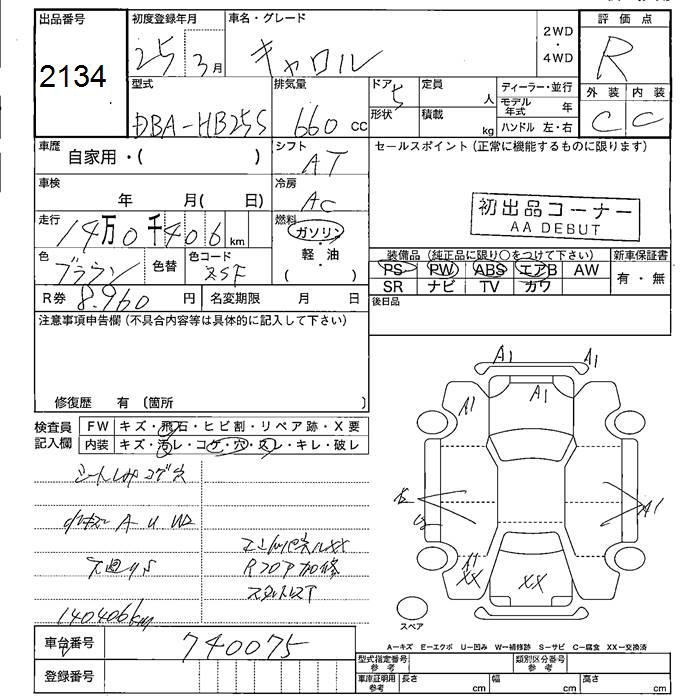 出品番号
2134
初度登録年月
25 3月
車名・グレード
キャロル
2WD
・
4WD
評価点
R
型式
DBA-HB25S
排気量
660 cc
ドア 5
形状
定員
人
積載
kg
ディーラー・並行
モデル年式 年
ハンドル 左・右
外装 内装
C C
車歴
自家用・( )
シフト
AT
セールスポイント(正常に機能するものに限ります)
車検
年 月( 日)
冷房
AC
初出品コーナー
AA DEBUT
走行
14万0千406km
燃料
ガソリン
・
軽・油
( )
色
ブラウン
色替
色コード
装備品(純正品に限り○をつけて下さい)
新車保証書
PS PW ABS エアB AW
SR ナビ TV カワ
有・無
R券 8.960 円
名変期限 月 日
後日品
注意事項申告欄(不具合内容等は具体的に記入して下さい)
修復歴 有(箇所 )
検査員
記入欄
FW キズ・飛石・ヒビ割・リペア跡・X要
内装 キズ・汚レ・コゲ・穴・スレ・キレ・破レ
A U W2
140406km
A1
A1
A1
A1
A1
A1
XX
XX
スペア
車台番号
740075
登録番号
A-キズ E-エクボ U-凹み W-補修跡 S-サビ C-腐食 XX-交換済
型式指定番号
参考
類別区分番号
参考
車庫証明用
参考
長さ cm 幅 cm 高さ cm